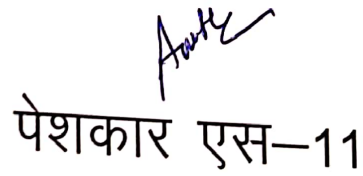 पेशकार एस–11